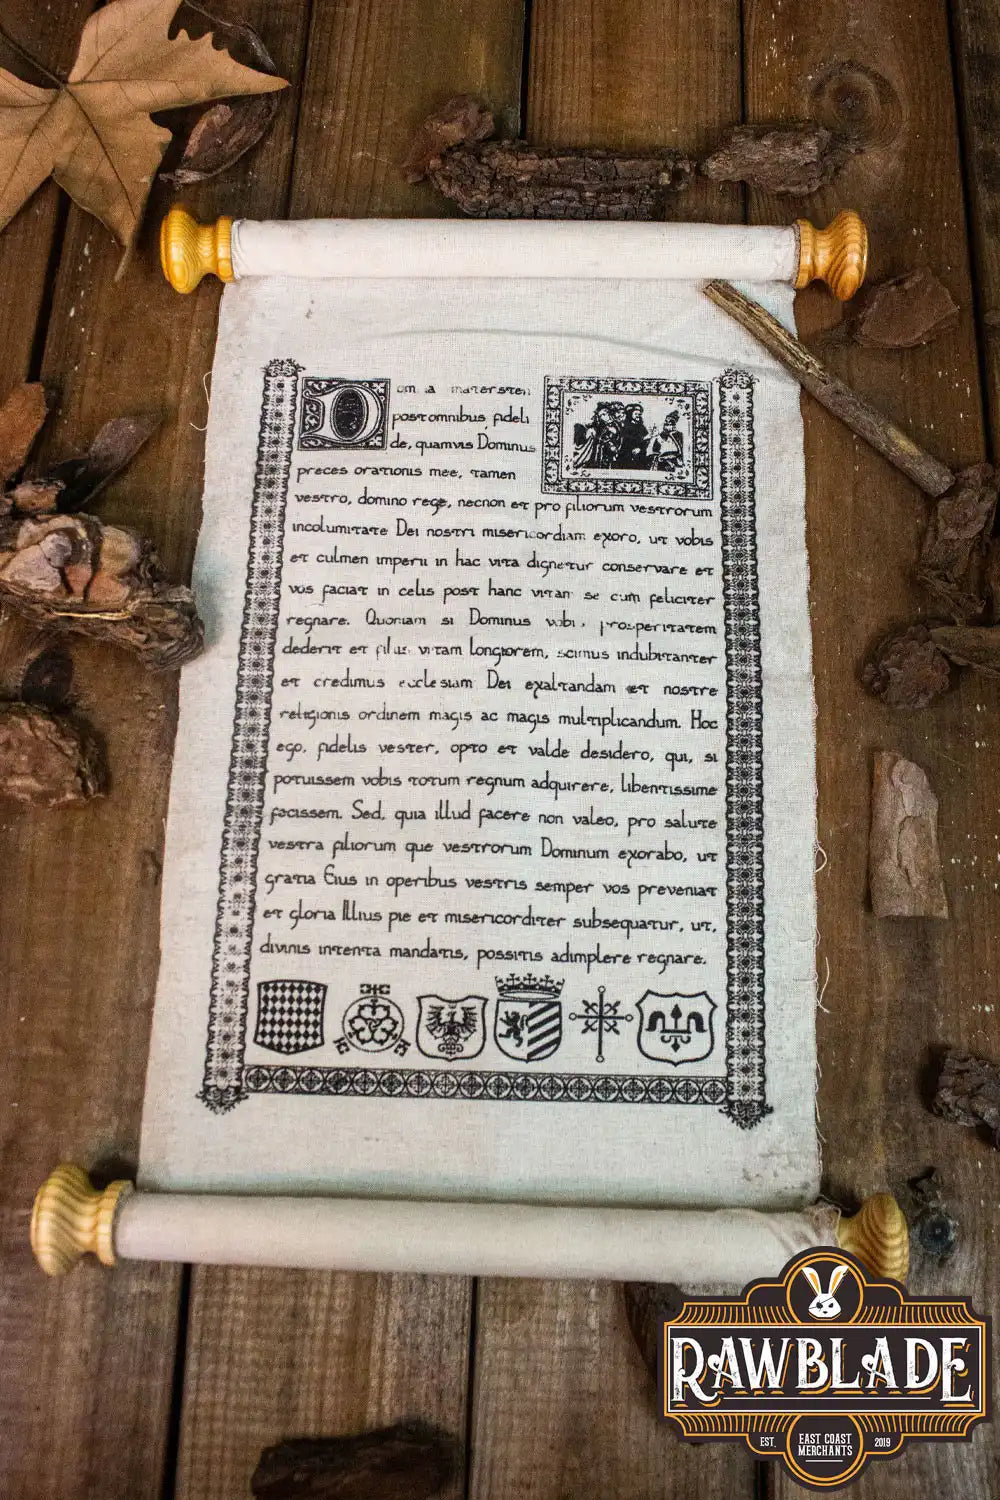 D
mater
post omnibus, fideli
de, quamvis Dominus
preces orationis mee, tamen
vestro, domino rege, necnon et pro filiorum vestrorum
incolumitate Dei nostri misericordiam exoro, ut vobis
et culmen imperii in hac vita dignetur conservare et
vos faciat in celis post hanc vitam se cum feliciter
regnare. Quoniam si Dominus vobis, prosperitatem
dederit et filiis vitam longiorem, scimus indubitanter
et credimus ecclesiam Dei exaltandam et nostre
religionis ordinem magis ac magis multiplicandum. Hoc
ego, fidelis vester, opto et valde desidero, qui, si
potuissem vobis totum regnum adquirere, libentissime
facissem. Sed, quia illud facere non valeo, pro salute
vestra filiorum que vestrorum Dominum exorabo, ut
gratia Eius in operibus vestris semper vos preveniat
et gloria Illius pie et misericorditer subsequatur, ut,
divinis intenta mandatis, possitis adimplere regnare.
RAWBLADE
EST. EAST COAST MERCHANTS 2019